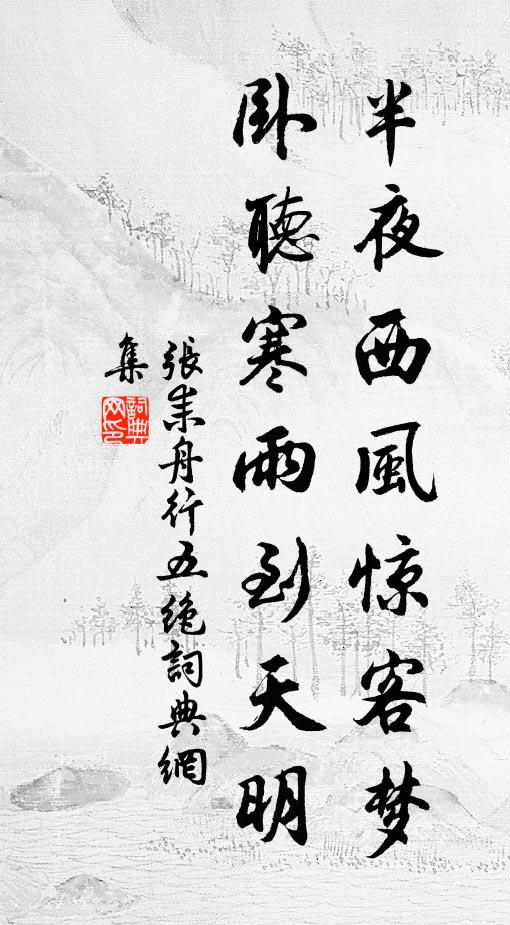 半夜西風惊客梦
卧聽寒雨到天明
張耒舟行五绝詞典網
集
詞典
网印